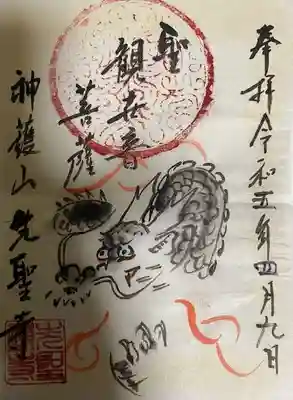 奉拝令和五年四月九日
聖
観世音
菩薩
神護山先聖寺